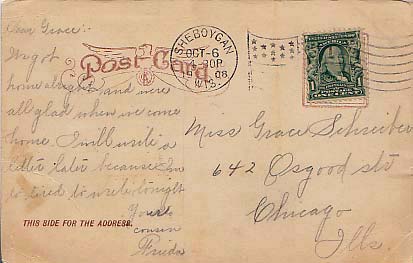 Dear Grace:-
We got
home allright and were
all glad when we come
home. I will write a
letter later because Im
to tired to write tonight
Yours
cousin
Frieda
Post Card
SHEBOYGAN
OCT-6
4-30P
08
WIS.
1
Miss Grace Schreiber
642 Osgood str
Chicago
Ills.
THIS SIDE FOR THE ADDRESS.